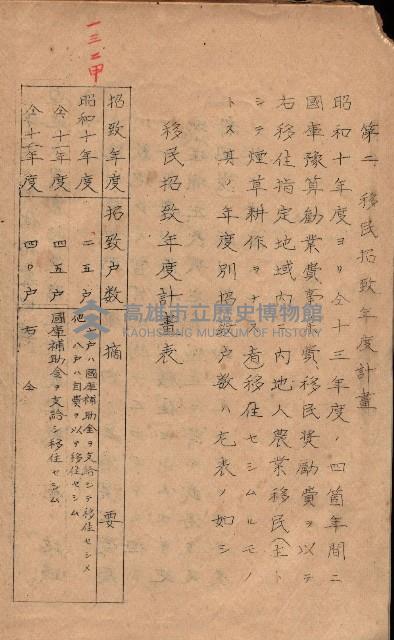 一三、二甲
第二 移民招致年度計畫
昭和十年度ヨリ仝十三年度ノ四箇年間ニ
國庫豫算勸業費事業費移民奬勵費ヲ以テ
右移住指定地域內ニ內地人農業移民(主ト
シテ煙草耕作ヲナス者)移住セシムルモノ
トス其ノ年度別招致戶數ハ左表ノ如シ
移民招致年度計畫表
招致年度 招致戶數 摘要
昭和十年度 二五戶 國庫補助金ヲ支給シテ移住セシメ
他ノ 八戶ハ自費ヲ以テ移住セシム
仝十一年度 四五戶 國庫補助金ヲ支給シ移住セシム
仝十二年度 四〇戶 右仝
高雄市立歷史博物館
KAOHSIUNG MUSEUM OF HISTORY